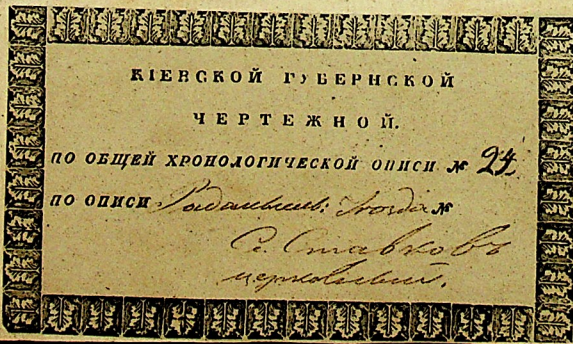 КІЕВСКОЙ ГУБЕРНСКОЙ
ЧЕРТЕЖНОЙ.
ПО ОБЩЕЙ ХРОНОЛОГИЧЕСКОЙ ОПИСИ №
ПО ОПИСИ Радомысл: уѣзда №
С. Ставковъ
церковный.